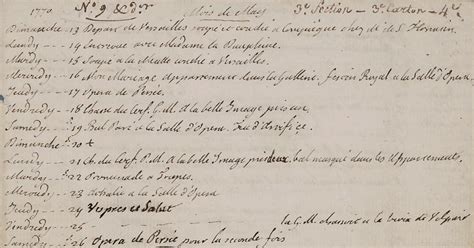 1770 N.º 9 & d.er Mois de May 3e Section - 3e Carton - 4e
Dimanche 13 Depart de Versailles soupé et couché à Compiègne chez
Lundy - - 14 Entrevue avec Madame la Dauphine
Mardy - - 15 Soupé à la Muette couché à Versailles
Mercredy - - 16 Mon Mariage appartement dans la Gallerie festin Royal à la Salle d'Opera
Jeudy - - 17 Opera de Persée
Vendredy - - 18 Chasse du Cerf à la belle Image
Samedy - - 19 Bal Paré à la Salle d'Opera feu d'artifice
Dimanche 20
Lundy - - 21 Ch. du Cerf à la belle Image bal masqué dans les Appartements
Mardy - - 22 Promenade à
Mercredy - - 23 Athalie à la Salle d'Opera
Jeudy - - 24 Vespres et Salut
Vendredy - - 25 la
Samedy - - 26 Opera de Persée pour la seconde fois